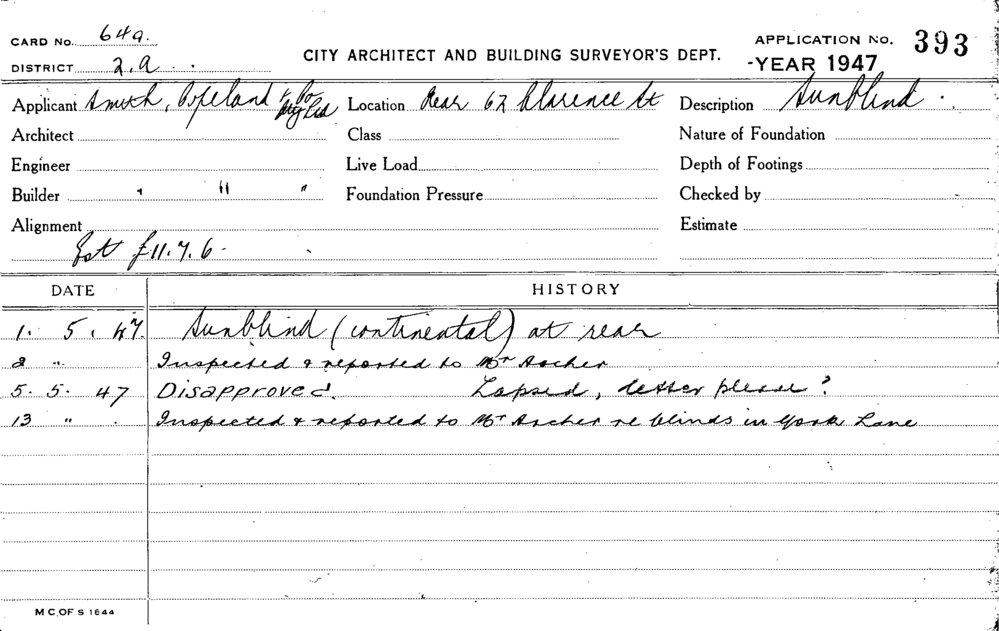 CARD NO. 64a.
DISTRICT 2.a
CITY ARCHITECT AND BUILDING SURVEYOR'S DEPT.
APPLICATION NO. 393
-YEAR 1947
Applicant Smith, Copeland & Co Pty Ltd Location Rear 62 Clarence St Description Sunblind.
Architect Class Nature of Foundation
Engineer Live Load Depth of Footings
Builder " " " Foundation Pressure Checked by
Alignment Estimate
Est £11.7.6.
DATE HISTORY
1. 5. 47. Sunblind (continental) at rear
2 " Inspected & reported to Mr Archer
5. 5. 47 Disapproved. Lapsed, letter please?
13 " Inspected & reported to Mr Archer re blinds in York Lane
M C OF S 1644